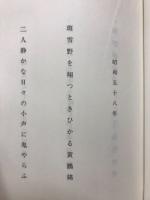 昭和五十八年
斑雪野を翔つときひかる黄鶺鴒
二人静かな日々の小声に鬼やらふ